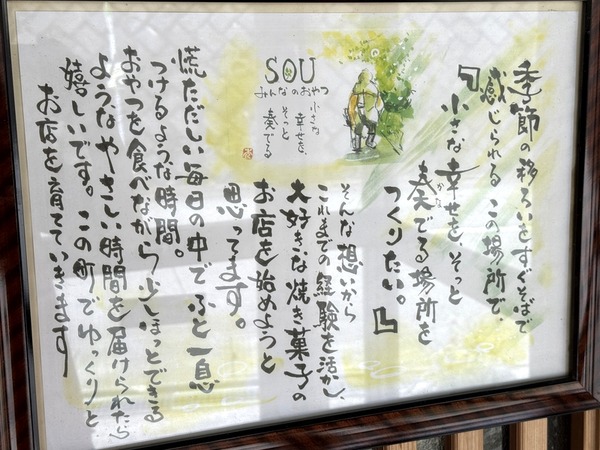 季節の移ろいをすぐそばで
感じられるこの場所で、
「小さな幸せを、そっと
奏でる場所を
かな
つくりたい。」
そんな想いから
これまでの経験を活かし、
大好きな焼き菓子の
お店を始めようと
思ってます。
SOU
みんなのおやつ
小さな
幸せを、
そっと
奏でる
慌ただしい毎日の中でふと一息
つけるような時間。
おやつを食べながら少しほっとできる
ようなやさしい時間を届けられたら
嬉しいです。この町でゆっくりと
お店を育てていきます